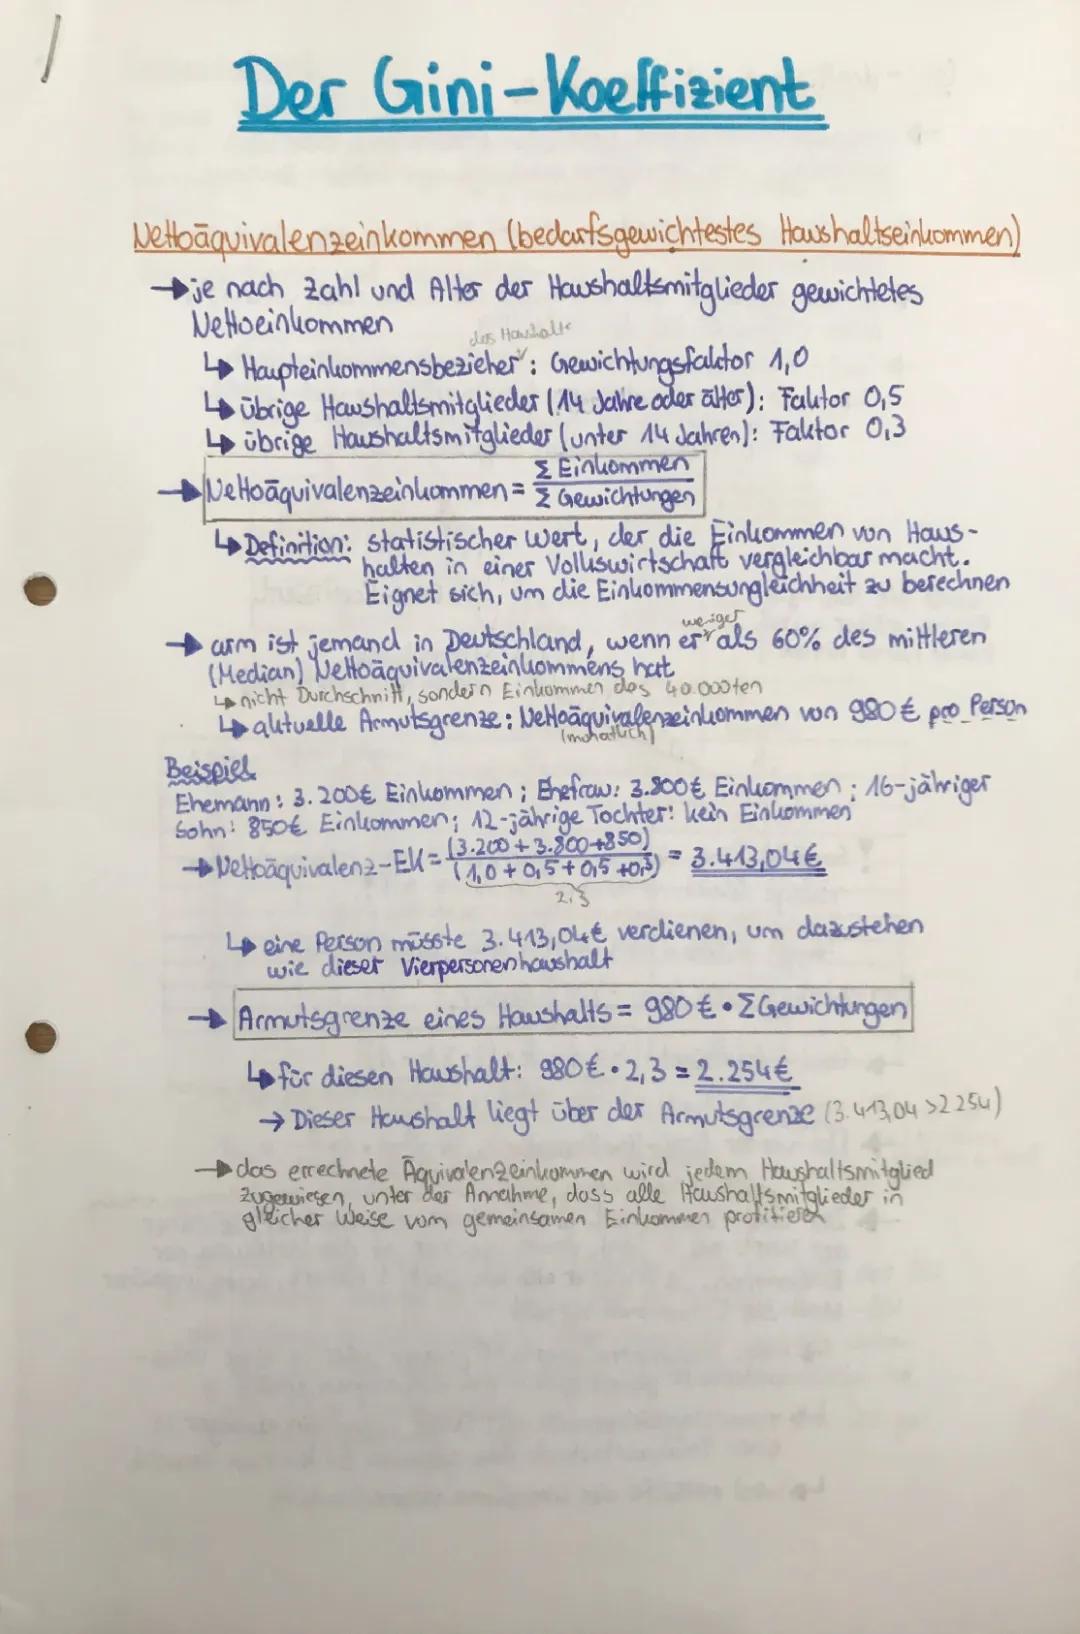 Der Gini-Koeffizient
Nettoäquivalenzeinkommen (bedarfsgewichtestes Haushaltseinkommen)
→ je nach Zahl und Alter der Haushaltsmitglieder gewichtetes
Nettoeinkommen
des Haushalts
↳ Haupteinkommensbezieher: Gewichtungsfaktor 1,0
↳ übrige Haushaltsmitglieder (14 Jahre oder älter): Faktor 0,5
↳ übrige Haushaltsmitglieder (unter 14 Jahren): Faktor 0,3
→ Nettoäquivalenzeinkommen = Σ Einkommen / Σ Gewichtungen
↳ Definition: statistischer Wert, der die Einkommen von Haus-
halten in einer Volkswirtschaft vergleichbar macht.
Eignet sich, um die Einkommensungleichheit zu berechnen
weniger
→ arm ist jemand in Deutschland, wenn er als 60% des mittleren
(Median) Nettoäquivalenzeinkommens hat
↳ nicht Durchschnitt, sondern Einkommen des 40.000ten
↳ aktuelle Armutsgrenze: Nettoäquivalenzeinkommen von 980€ pro Person
(monatlich)
Beispiel
Ehemann: 3.200€ Einkommen; Ehefrau: 3.800€ Einkommen; 16-jähriger
Sohn: 850€ Einkommen; 12-jährige Tochter: kein Einkommen
→ Nettoäquivalenz-EK = (3.200+3.800+850) / (1,0+0,5+0,5+0,3) = 3.413,04€
2,3
↳ eine Person müsste 3.413,04€ verdienen, um dazustehen
wie dieser Vierpersonenhaushalt
→ Armutsgrenze eines Haushalts = 980€ • Σ Gewichtungen
↳ für diesen Haushalt: 980€ • 2,3 = 2.254€
→ Dieser Haushalt liegt über der Armutsgrenze (3.413,04 > 2.254)
→ das errechnete Äquivalenzeinkommen wird jedem Haushaltsmitglied
zugewiesen, unter der Annahme, dass alle Haushaltsmitglieder in
gleicher Weise vom gemeinsamen Einkommen profitieren